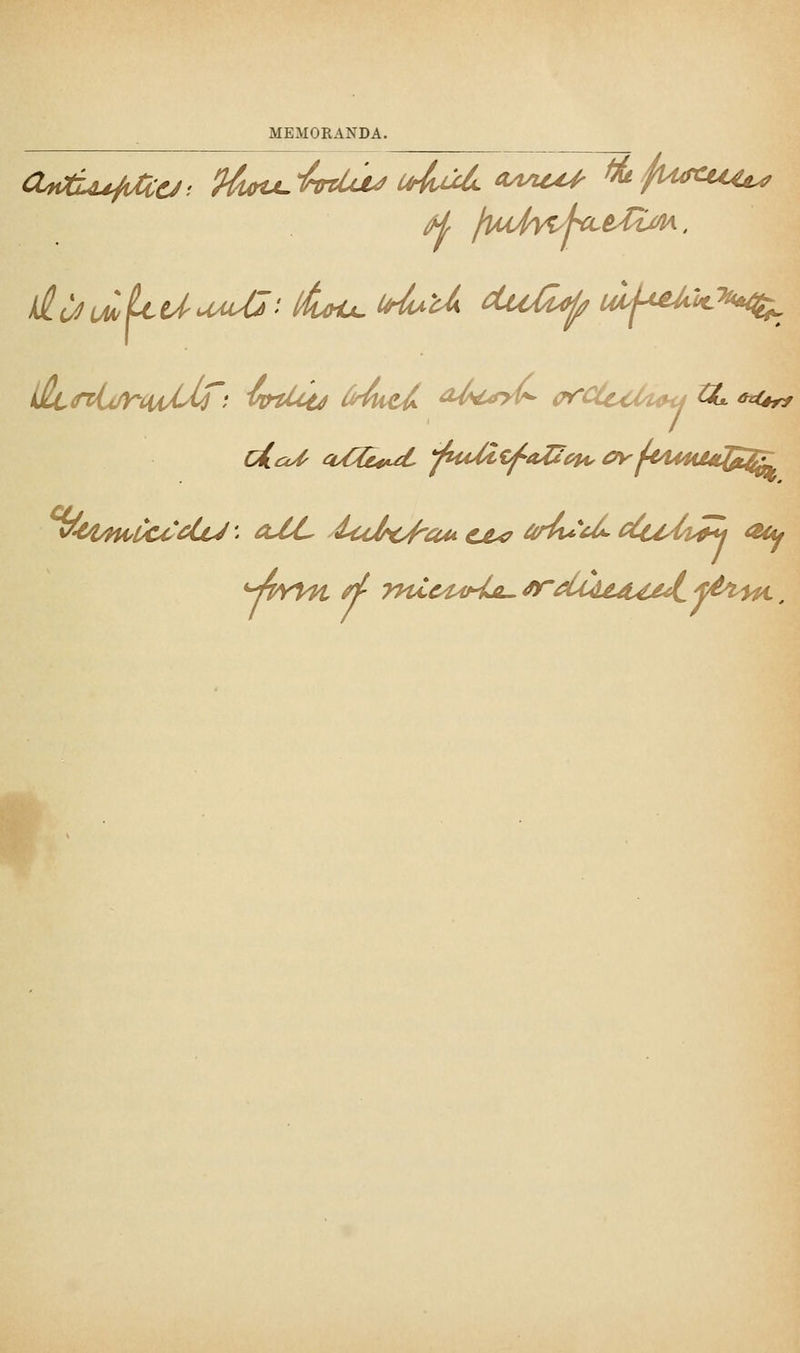 MEMORANDA.
Antiseptics: Those bodies which arrest the processes
of putrefaction.
Disinfectants: those which destroy infectious matter.
Deodorants: bodies which absorb or destroy the odors
that attend putrefaction or fermentation.
Germicides: all substances which destroy any
form of microbe or diseased germ.